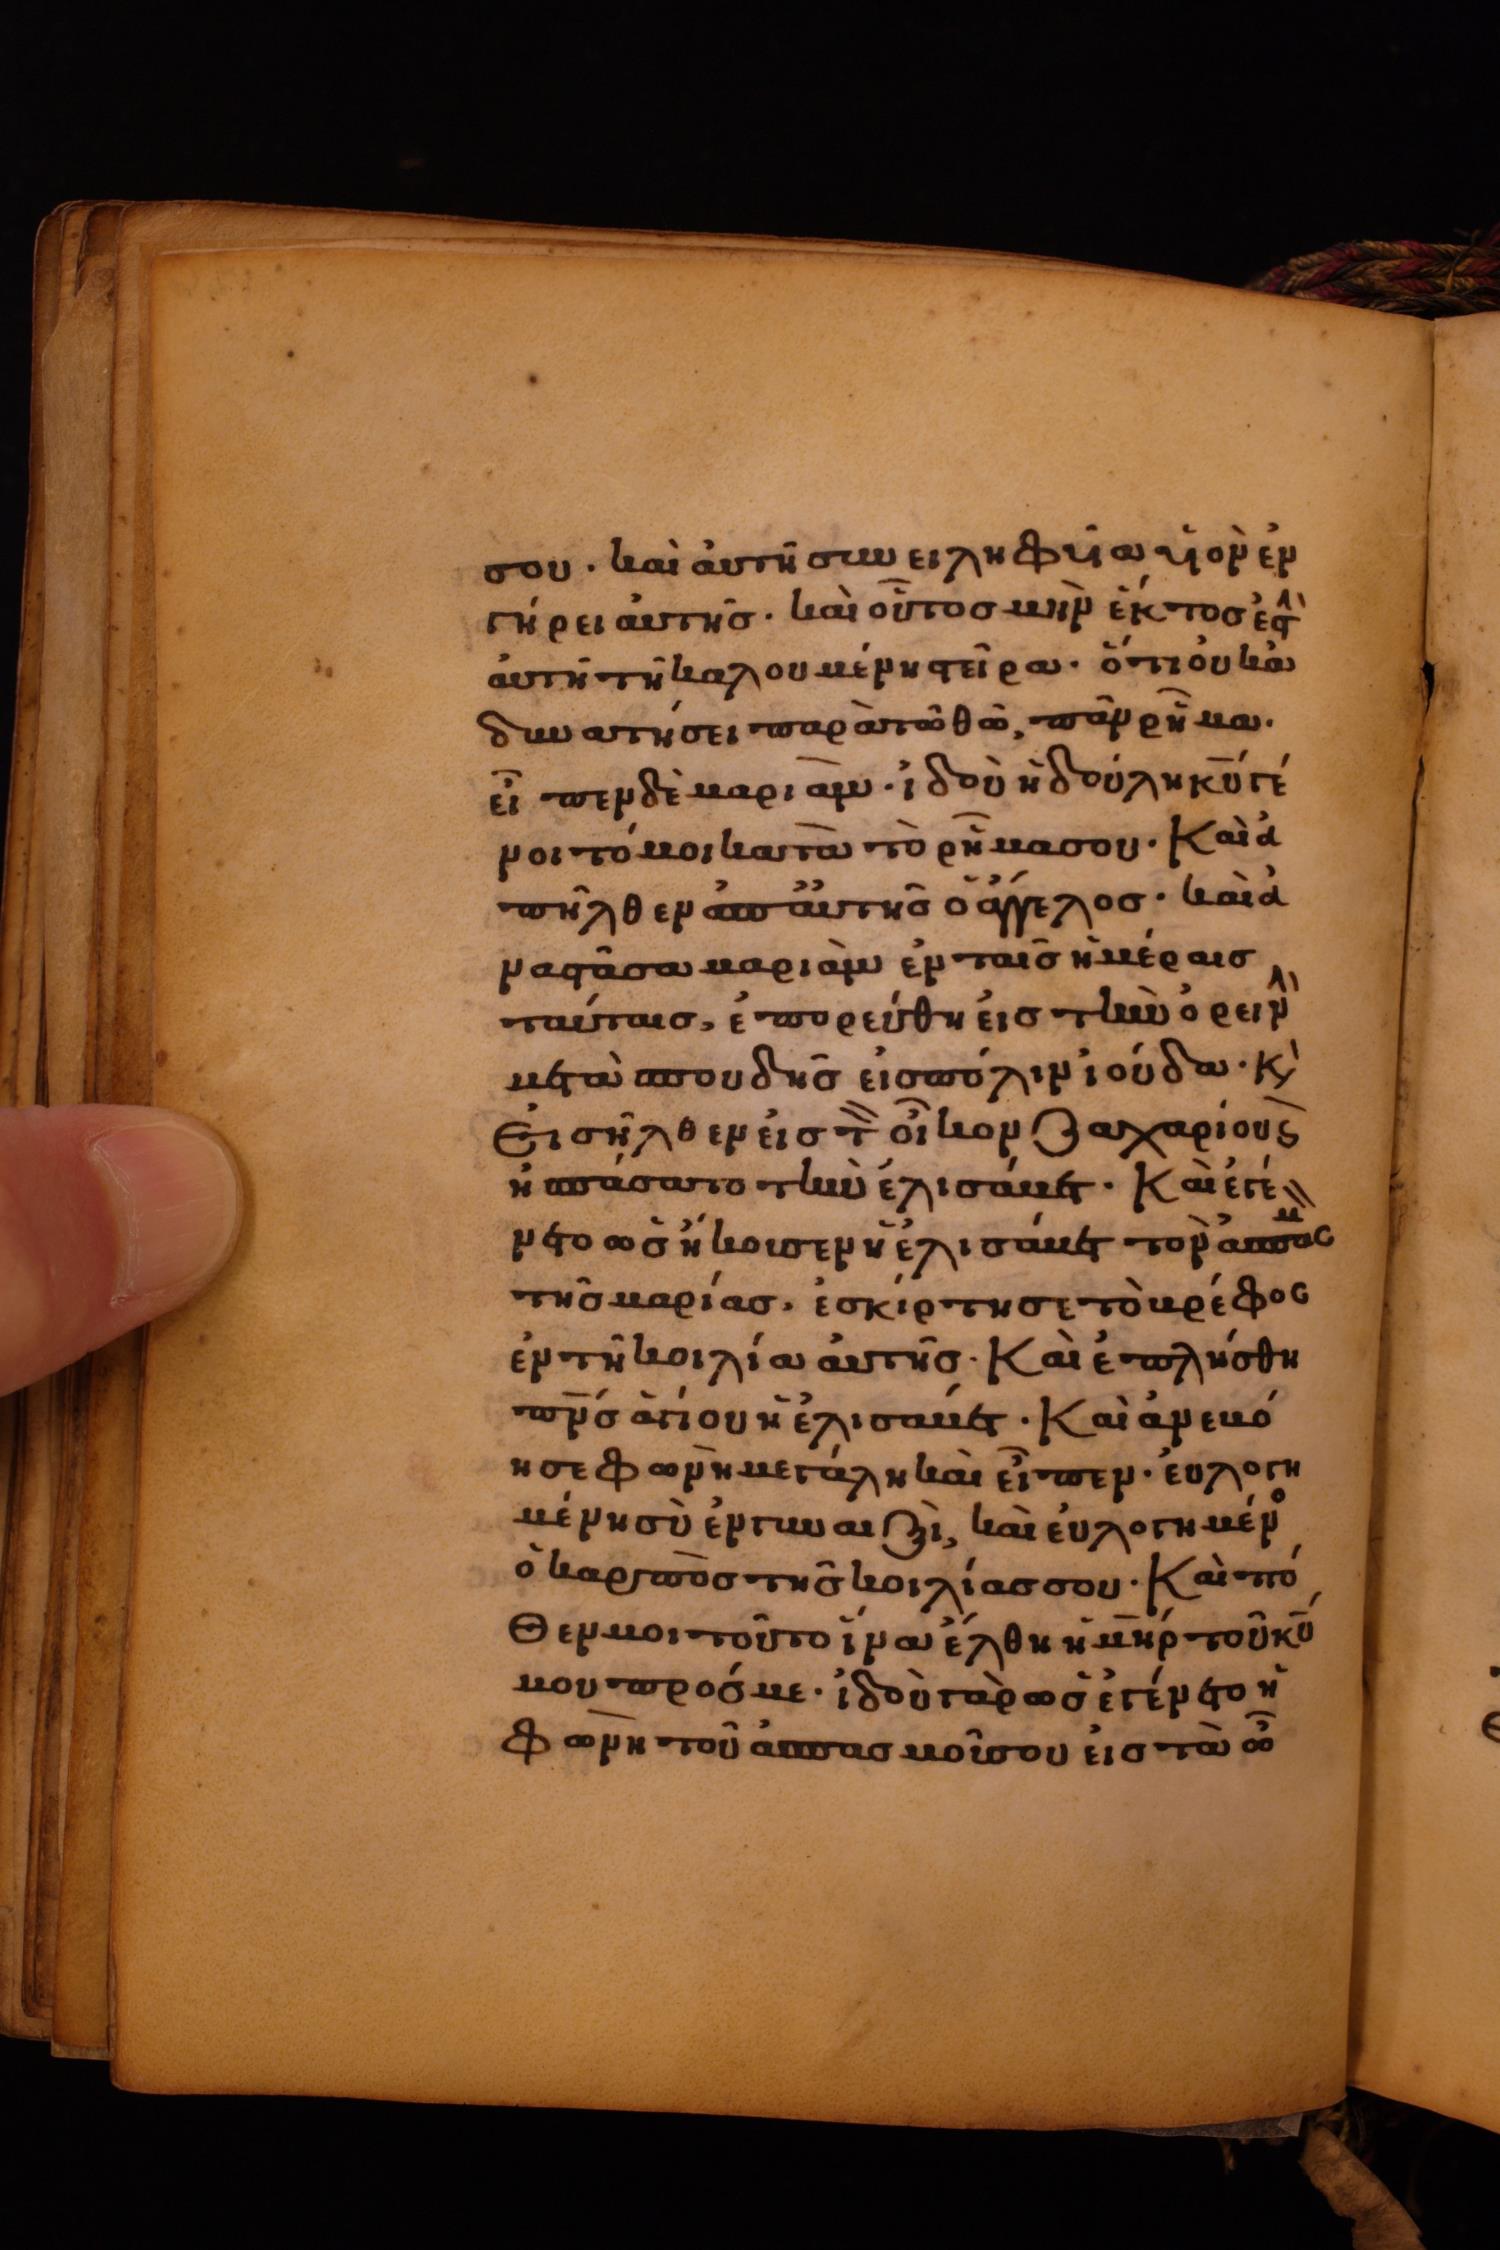 σου · καὶ ἀυτῆ συνειληφυῖα υἱὸν ἐν
γήρει ἀυτῆσ · καὶ οὗτοσ μὴν ἕκτοσ ἐστὶν
ἀυτῆ τῆ καλουμένη στεῖρα · ὅτι ὀυκ ἀ
δυνατήσει παρὰ τῶ θῶ, πᾶν ρῆμα ·
εἶπεν δὲ μαριὰμ · ἰδοὺ ἡ δούλη κῦ γέ
νοιτό μοι κατὰ τὸ ρῆμα σου · Καὶ ἀ
πῆλθεν ἀπ ἀυτῆσ ὁ ἄγγελοσ · καὶ ἀ
ναστᾶσα μαριὰμ ἐν ταῖσ ἡμέραισ
ταύταισ, ἐπορεύθη ἐισ τὴν ὀρεινὴν
μετὰ σπουδῆσ ἐισ πόλιν ἰούδα · κὶ
Εἰσῆλθεν ἐισ τὸν οἶκον Ζαχαρίου κὶ
ἠσπάσατο τὴν ἐλισάβετ · Καὶ ἐγέ
νετο ὡσ ἤκουσεν ἡ ἐλισάβετ τὸν ἀσπασμὸν
τῆσ μαρίασ, ἐσκίρτησε τὸ βρέφοσ
ἐν τῆ κοιλία ἀυτῆσ · Καὶ ἐπλήσθη
πνσ ἁγίου ἡ ἐλισάβετ · Καὶ ἀνεβό
ησε φωνὴ μεγάλη καὶ εἶπεν · ἐυλογη
μένη σὺ ἐν γυναιξὶ, καὶ ἐυλογημένοσ
ὁ καρπὸσ τῆσ κοιλίασ σου · Καὶ πό
θεν μοι τοῦτο ἵνα ἔλθη ἡ μηρ τοῦ κῦ
μου πρόσ με · ἰδοὺ γὰρ ὡσ ἐγένετο ἡ
φωνὴ τοῦ ἀσπασμοῦ σου ἐισ τὰ ὦ